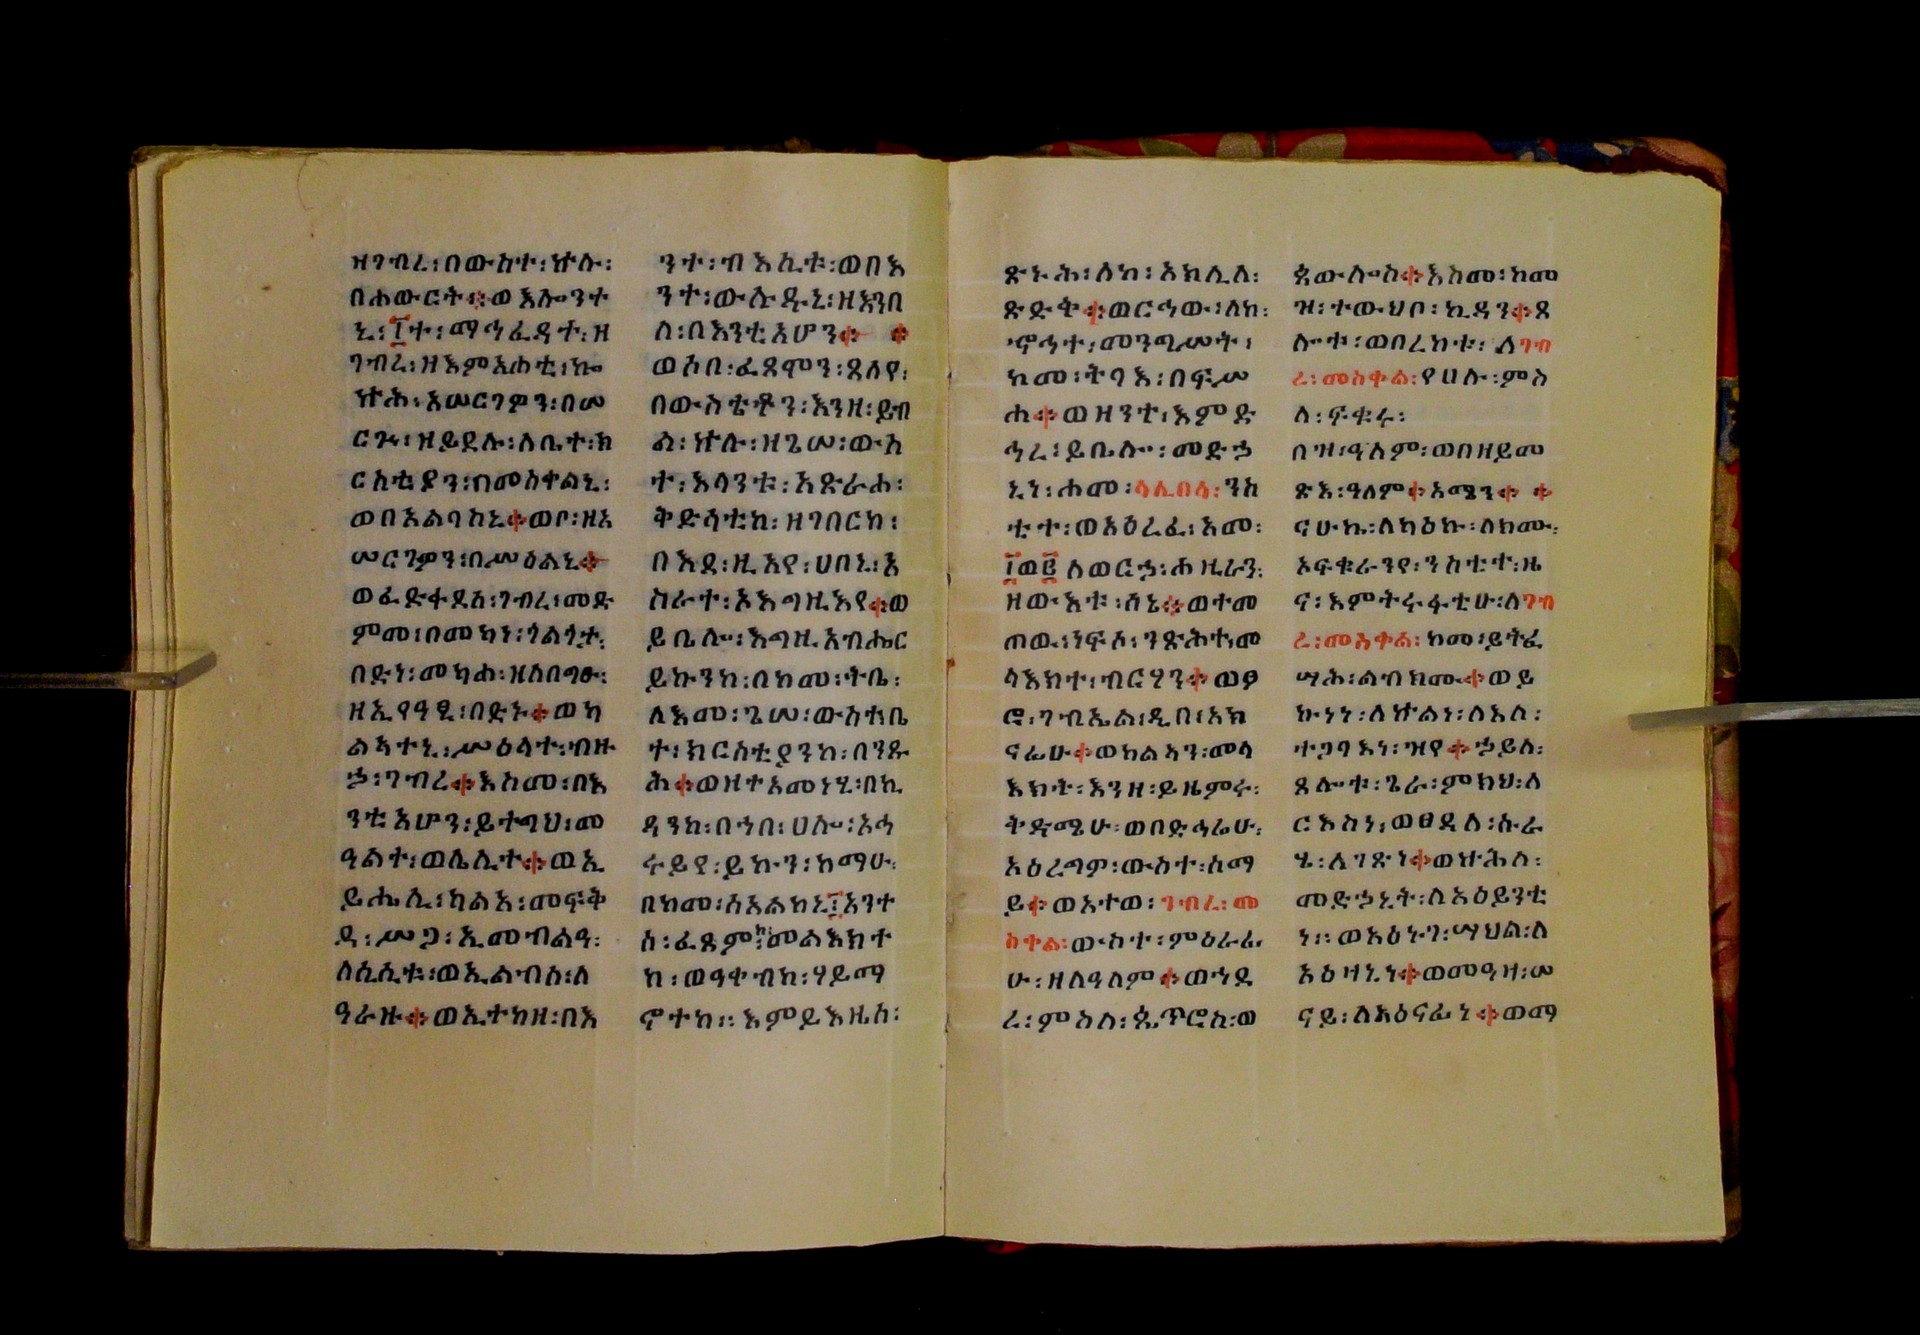 ዘገብረ፡በውስተ፡ኵሉ፡
በሐውርት፨ወእሎንተ
ኒ፡፲ተ፡ማኅፈዳተ፡ዘ
ገብረ፡ዘእምአሐቲ፡ኰ
ኵሕ፡አሠርገዎን፡በመ
ርጡ፡ዘይደሉ፡ለቤተ፡ክ
ርስቲያን፡በመስቀልኒ፡
ወበአልባስኒ፨ወቦ፡ዘአ
ሠርገዎን፡በሥዕልኒ፨
ወፈድፋደሰ፡ገብረ፡መድ
ምመ፡በመካነ፡ጎልጎታ፡
በድነ፡መካሐ፡ዝስበጣዕ፡
ዘኢየዓፂ፡በድኑ፨ወካ
ልኣተኒ፡ሥዕላተ፡ብዙ
ኃ፡ገብረ፨እስመ፡በእ
ንቲአሆን፡ይተግህ፡መ
ዓልተ፡ወሌሊተ፨ወኢ
ይሔሊ፡ካልአ፡መፍቅ
ዳ፡ሥጋ፡ኢመብልዓ፡
ለሲሲቱ፡ወኢልብሰ፡ለ
ዓራዙ፨ወኢተከዘ፡በእ
ንተ፡ብእሲቱ፡ወበእ
ንተ፡ውሉዱኒ፡ዘእንበ
ለ፡በእንቲአሆን፨ ፨
ወሶበ፡ፈጸሞን፡ጸለየ፡
በውስቴቶን፡እንዘ፡ይብ
ል፡ኵሉ፡ዘጌሠ፡ውስ
ተ፡እላንቱ፡አጽራሐ፡
ቅድሳቲከ፡ዘገበርከ፡
በእደ፡ዚአየ፡ሀበኒ፡አ
ስራተ፡ኦእግዚእየ፨ወ
ይቤሎ፡እግዚአብሔር
ይኩንከ፡በከመ፡ትቤ፡
ለእመ፡ጌሠ፡ውስተ፡ቤ
ተ፡ክርስቲያንከ፡በንጹ
ሕ፨ወዘተአመነሂ፡በኪ
ዳንከ፡በኀበ፡ሀሎ፡አሓ
ሩይየ፡ይኩን፡ከማሁ፡
በከመ፡ሰአልከኒ፲አንተ
ሰ፡ፈጸምከ፡መልእክተ
ከ፡ወዓቀብከ፡ሃይማ
ኖተከ፡፡እምይእዜሰ፡
ጽኑሕ፡ለከ፡አክሊለ፡
ጽድቅ፨ወርኅው፡ለከ፡
ኆኅተ፡መንግሥት፡
ከመ፡ትባእ፡በፍሥ
ሐ፨ወዘንተ፡እምድ
ኅረ፡ይቤሎ፡መድኃ
ኒነ፡ሐመ፡ላሊበላ፡ንስ
ቲተ፡ወአዕረፈ፡አመ፡
፲ወ፪ለወርኃ፡ሐዚራን፡
ዘውእቱ፡ሰኔ፨ወተመ
ጠወ፡ነፍሶ፡ንጽሕተ፡መ
ላእክተ፡ብርሃን፨ወፆ
ሮ፡ገብኤል፡ዲበ፡አክ
ናፊሁ፨ወካልኣን፡መላ
እክት፡እንዘ፡ይዜምሩ፡
ቅድሜሁ፡ወበድኅሬሁ፡
አዕረግዎ፡ውስተ፡ሰማ
ይ፨ወአተወ፡ገብረ፡መ
ስቀል፡ውስተ፡ምዕራፊ
ሁ፡ዘለዓለም፨ወኀደ
ረ፡ምስለ፡ጴጥሮስ፡ወ
ጳውሎስ፨እስመ፡ከመ
ዝ፡ተውህቦ፡ኪዳን፨ጸ
ሎቱ፡ወበረከቱ፡ለገብ
ረ፡መስቀል፡የሀሉ፡ምስ
ለ፡ፍቁሩ፡
በዝ፡ዓለም፡ወበዘይመ
ጽእ፡ዓለም፨አሜን፨ ፨
ናሁኬ፡ለካዕኩ፡ለክሙ፡
ኦፍቁራንየ፡ንስቲተ፡ዜ
ና፡እምትሩፋቲሁ፡ለገብ
ረ፡መስቀል፡ከመ፡ይትፈ
ሣሕ፡ልብክሙ፨ወይ
ኩነነ፡ለኵልነ፡ለእለ፡
ተጋባእነ፡ዝየ፨ኃይለ፡
ጸሎቱ፡ጌራ፡ምክህ፡ለ
ርእስነ፡ወፀዳለ፡ሱራ
ሄ፡ለገጽነ፨ወኵሕለ፡
መድኃኒት፡ለአዕይንቲ
ነ፡፡ወአዕኑገ፡ሣህል፡ለ
አዕዛኒነ፨ወመዓዛ፡ሠ
ናይ፡ለአዕናፊነ፨ወማ